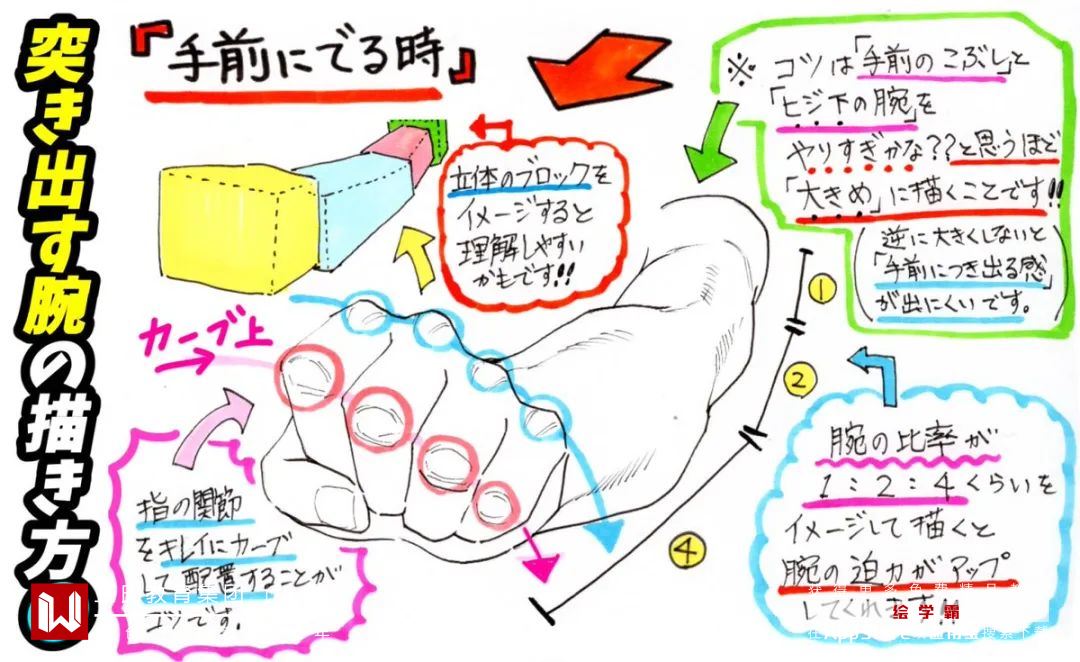 突き出す腕の描き方
『手前にでる時』
※ コツは「手前のこぶし」と
「ヒジ下の腕」を
やりすぎかな??と思うほど
「大きめ」に描くことです!!
(逆に大きくしないと
「手前につき出る感」
が出にくいです。)
立体のブロックを
イメージすると
理解しやすい
かもです!!
カーブ上
①
②
④
指の関節
をキレイにカーブ
して配置することが
コツです。
腕の比率が
1:2:4くらいを
イメージして描くと
腕の迫力がアップ
してくれます!!
教育集団
绘学霸